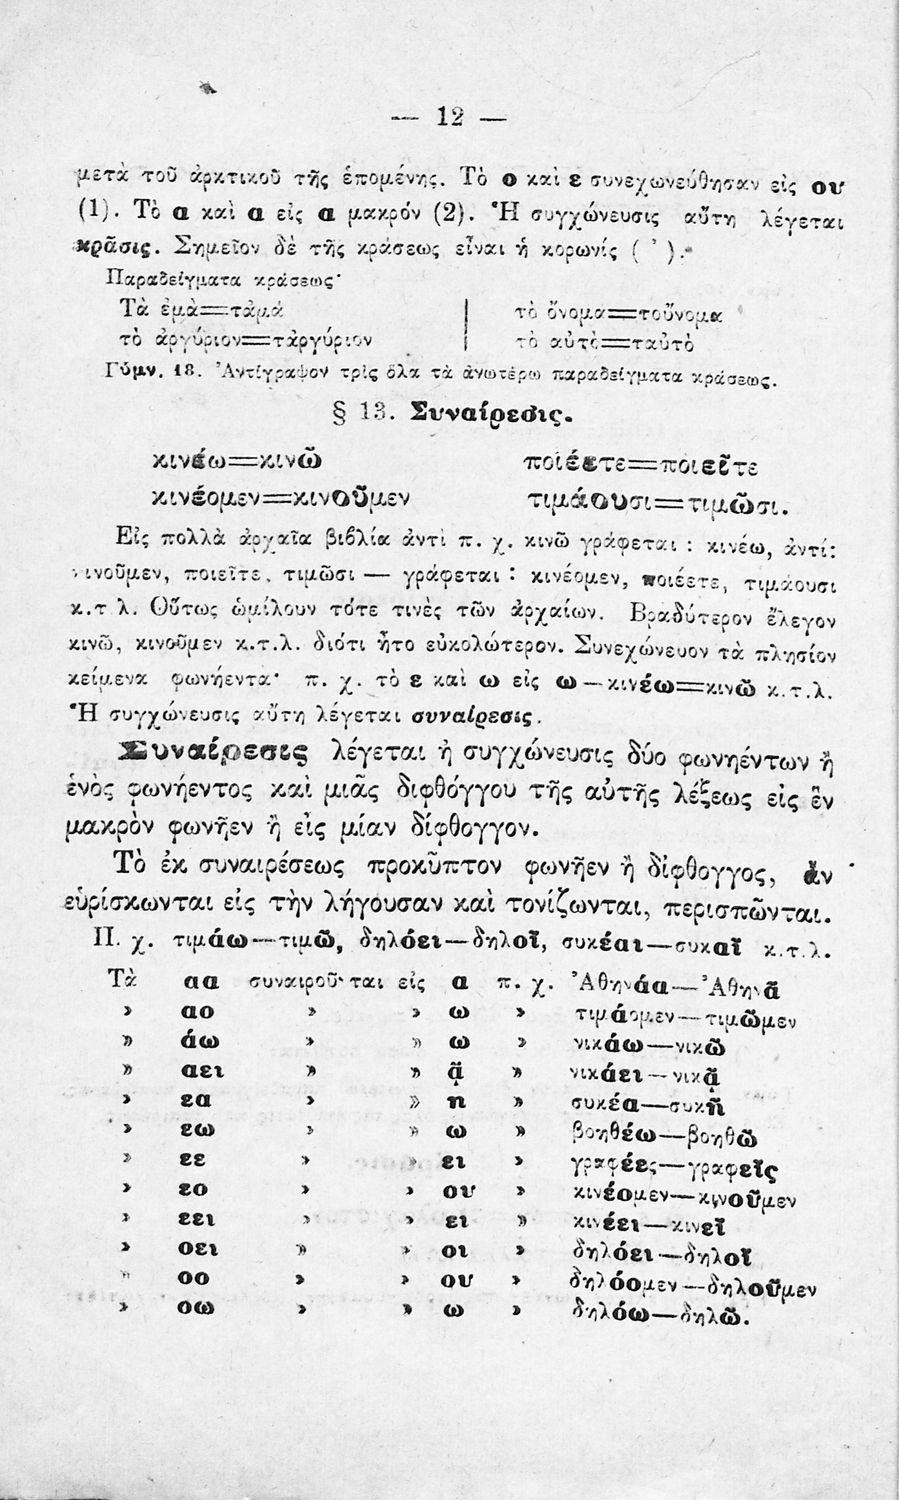 — 12 —
μετὰ τοῦ ἀρκτικοῦ τῆς ἑπομένης. Τὸ ο καὶ ε συνεχωνεύθησαν εἰς ου
(1). Τὸ α καὶ α εἰς α μακρόν (2). Ἡ συγχώνευσις αὕτη λέγεται
κρᾶσις. Σημεῖον δὲ τῆς κράσεως εἶναι ἡ κορωνίς ( ᾽ ).
Παραδείγματα κράσεως·
Τὰ ἐμὰ=τἀμά | τὸ ὄνομα=τοὔνομα
τὸ ἀργύριον=τἀργύριον | τὸ αὐτὸ=ταὐτὸ
Γύμν. 18. Ἀντίγραψον τρὶς ὅλα τὰ ἀνωτέρω παραδείγματα κράσεως.
§ 13. Συναίρεσις.
κινέω=κινῶ ποιέετε=ποιεῖτε
κινέομεν=κινοῦμεν τιμάουσι=τιμῶσι.
Εἰς πολλὰ ἀρχαῖα βιβλία ἀντὶ π. χ. κινῶ γράφεται : κινέω, ἀντί:
κινοῦμεν, ποιεῖτε, τιμῶσι — γράφεται : κινέομεν, ποιέετε, τιμάουσι
κ.τ λ. Οὕτως ὡμίλουν τότε τινὲς τῶν ἀρχαίων. Βραδύτερον ἔλεγον
κινῶ, κινοῦμεν κ.τ.λ. διότι ἦτο εὐκολώτερον. Συνεχώνευον τὰ πλησίον
κείμενα φωνήεντα· π. χ. τὸ ε καὶ ω εἰς ω — κινέω=κινῶ κ.τ.λ.
Ἡ συγχώνευσις αὕτη λέγεται συναίρεσις.
Συναίρεσις λέγεται ἡ συγχώνευσις δύο φωνηέντων ἢ
ἑνὸς φωνήεντος καὶ μιᾶς διφθόγγου τῆς αὐτῆς λέξεως εἰς ἓν
μακρὸν φωνῆεν ἢ εἰς μίαν δίφθογγον.
Τὸ ἐκ συναιρέσεως προκῦπτον φωνῆεν ἢ δίφθογγος, ἂν
εὑρίσκωνται εἰς τὴν λήγουσαν καὶ τονίζωνται, περισπῶνται.
Π. χ. τιμάω—τιμῶ, δηλόει—δηλοῖ, συκέαι—συκαῖ κ.τ.λ.
Τὰ αα συναιροῦνται εἰς α π. χ. Ἀθηνάα—Ἀθηνᾶ
» αο » » ω » τιμάομεν—τιμῶμεν
» άω » » ω » νικάω—νικῶ
» αει » » ᾷ » νικάει—νικᾷ
» εα » » η » συκέα—συκῆ
» εω » » ω » βοηθέω—βοηθῶ
» εε » » ει » γραφέες—γραφεῖς
» εο » » ου » κινέομεν—κινοῦμεν
» εει » » ει » κινέει—κινεῖ
» οει » » οι » δηλόει—δηλοῖ
» οο » » ου » δηλόομεν—δηλοῦμεν
» οω » » ω » δηλόω—δηλῶ.